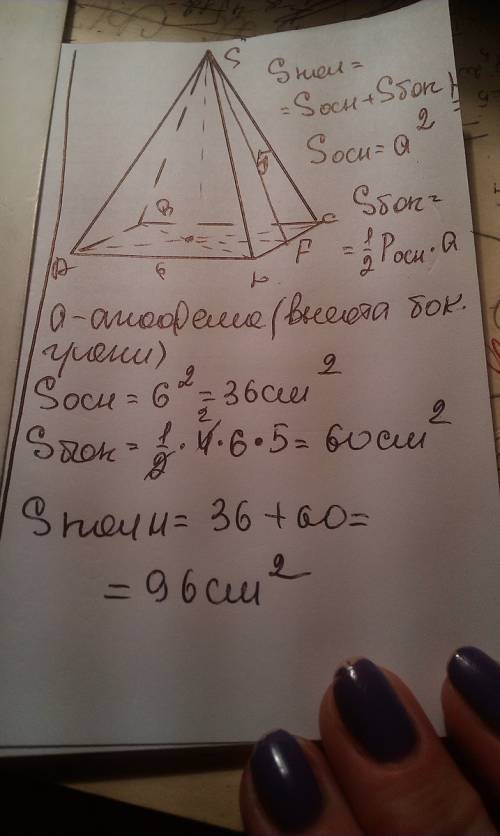 S
Sпол =
= Sосн + Sбок
Sосн = a²
Sбок =
= 1/2 Pосн · a
5
B
C
A
6
F
a - апофема (высота бок.
грани)
Sосн = 6² = 36 см²
Sбок = 1/2 · 4 · 6 · 5 = 60 см²
Sполн = 36 + 60 =
= 96 см²